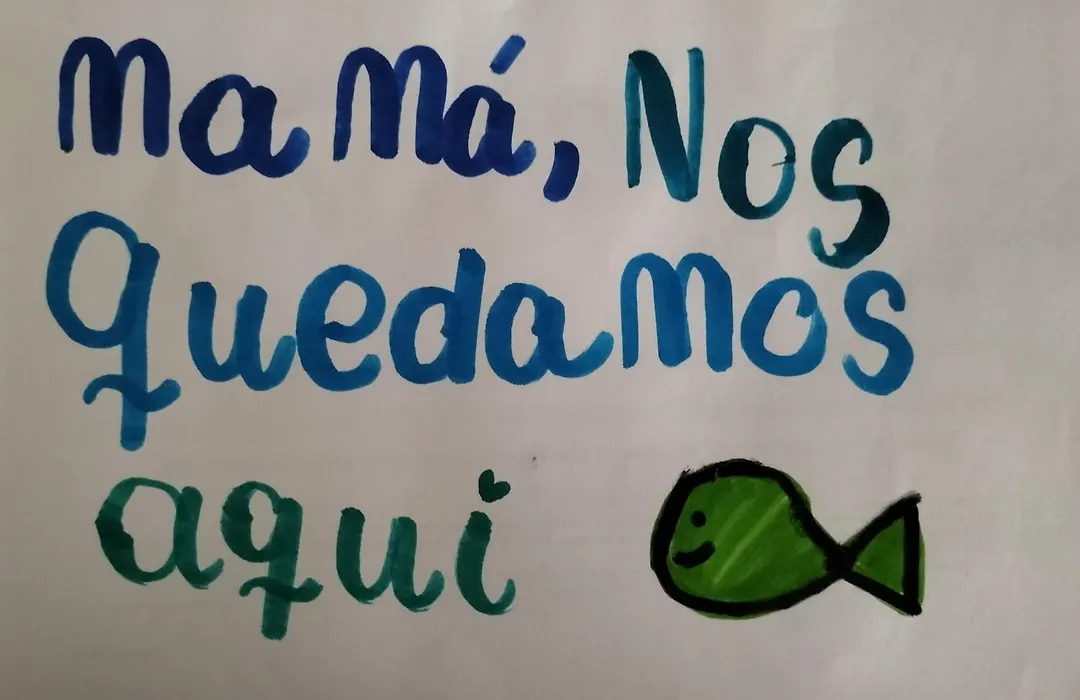 Mamá, Nos
quedamos
aqui